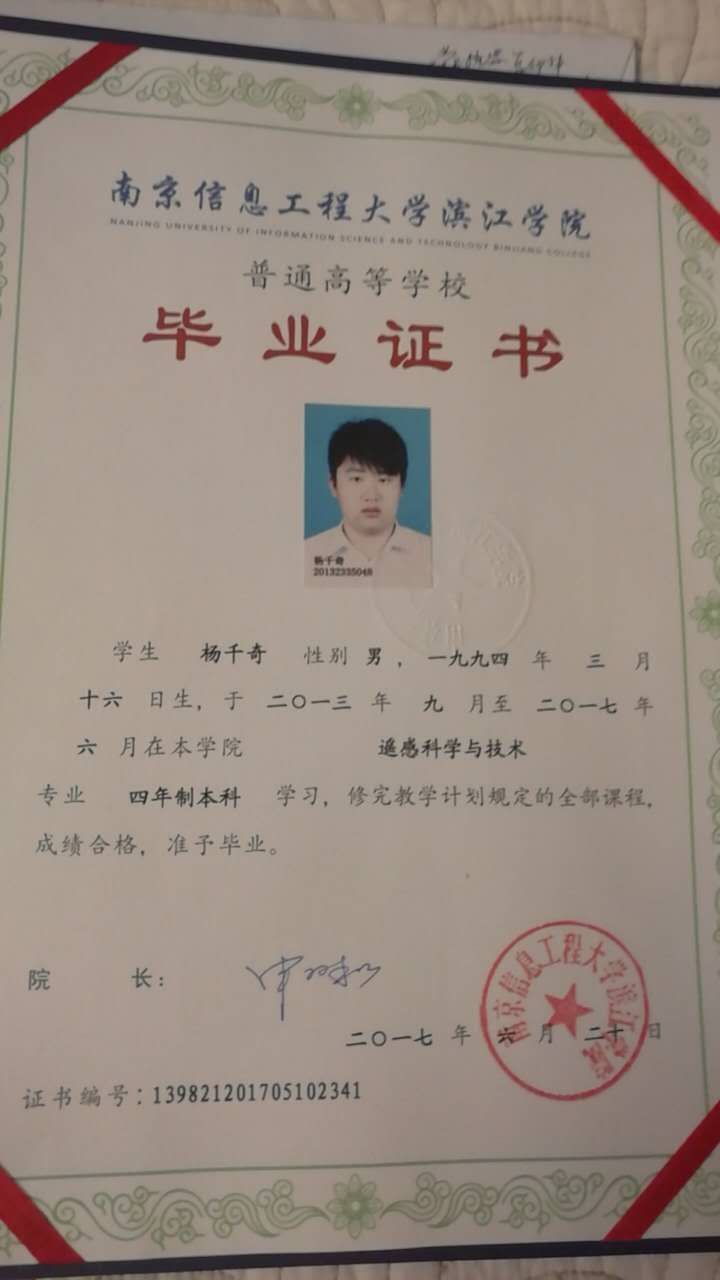 南京信息工程大学滨江学院
NANJING UNIVERSITY OF INFORMATION SCIENCE AND TECHNOLOGY BINJIANG COLLEGE
普通高等学校
毕业证书
杨千奇
20132335048
学生 杨千奇 性别 男，一九九四 年 三 月
十六 日生，于 二〇一三 年 九 月至 二〇一七 年
六 月在本学院 遥感科学与技术
专业 四年制本科 学习，修完教学计划规定的全部课程，
成绩合格，准予毕业。
院 长：
南京信息工程大学滨江学院
二〇一七 年 六 月 二十 日
证书编号：139821201705102341